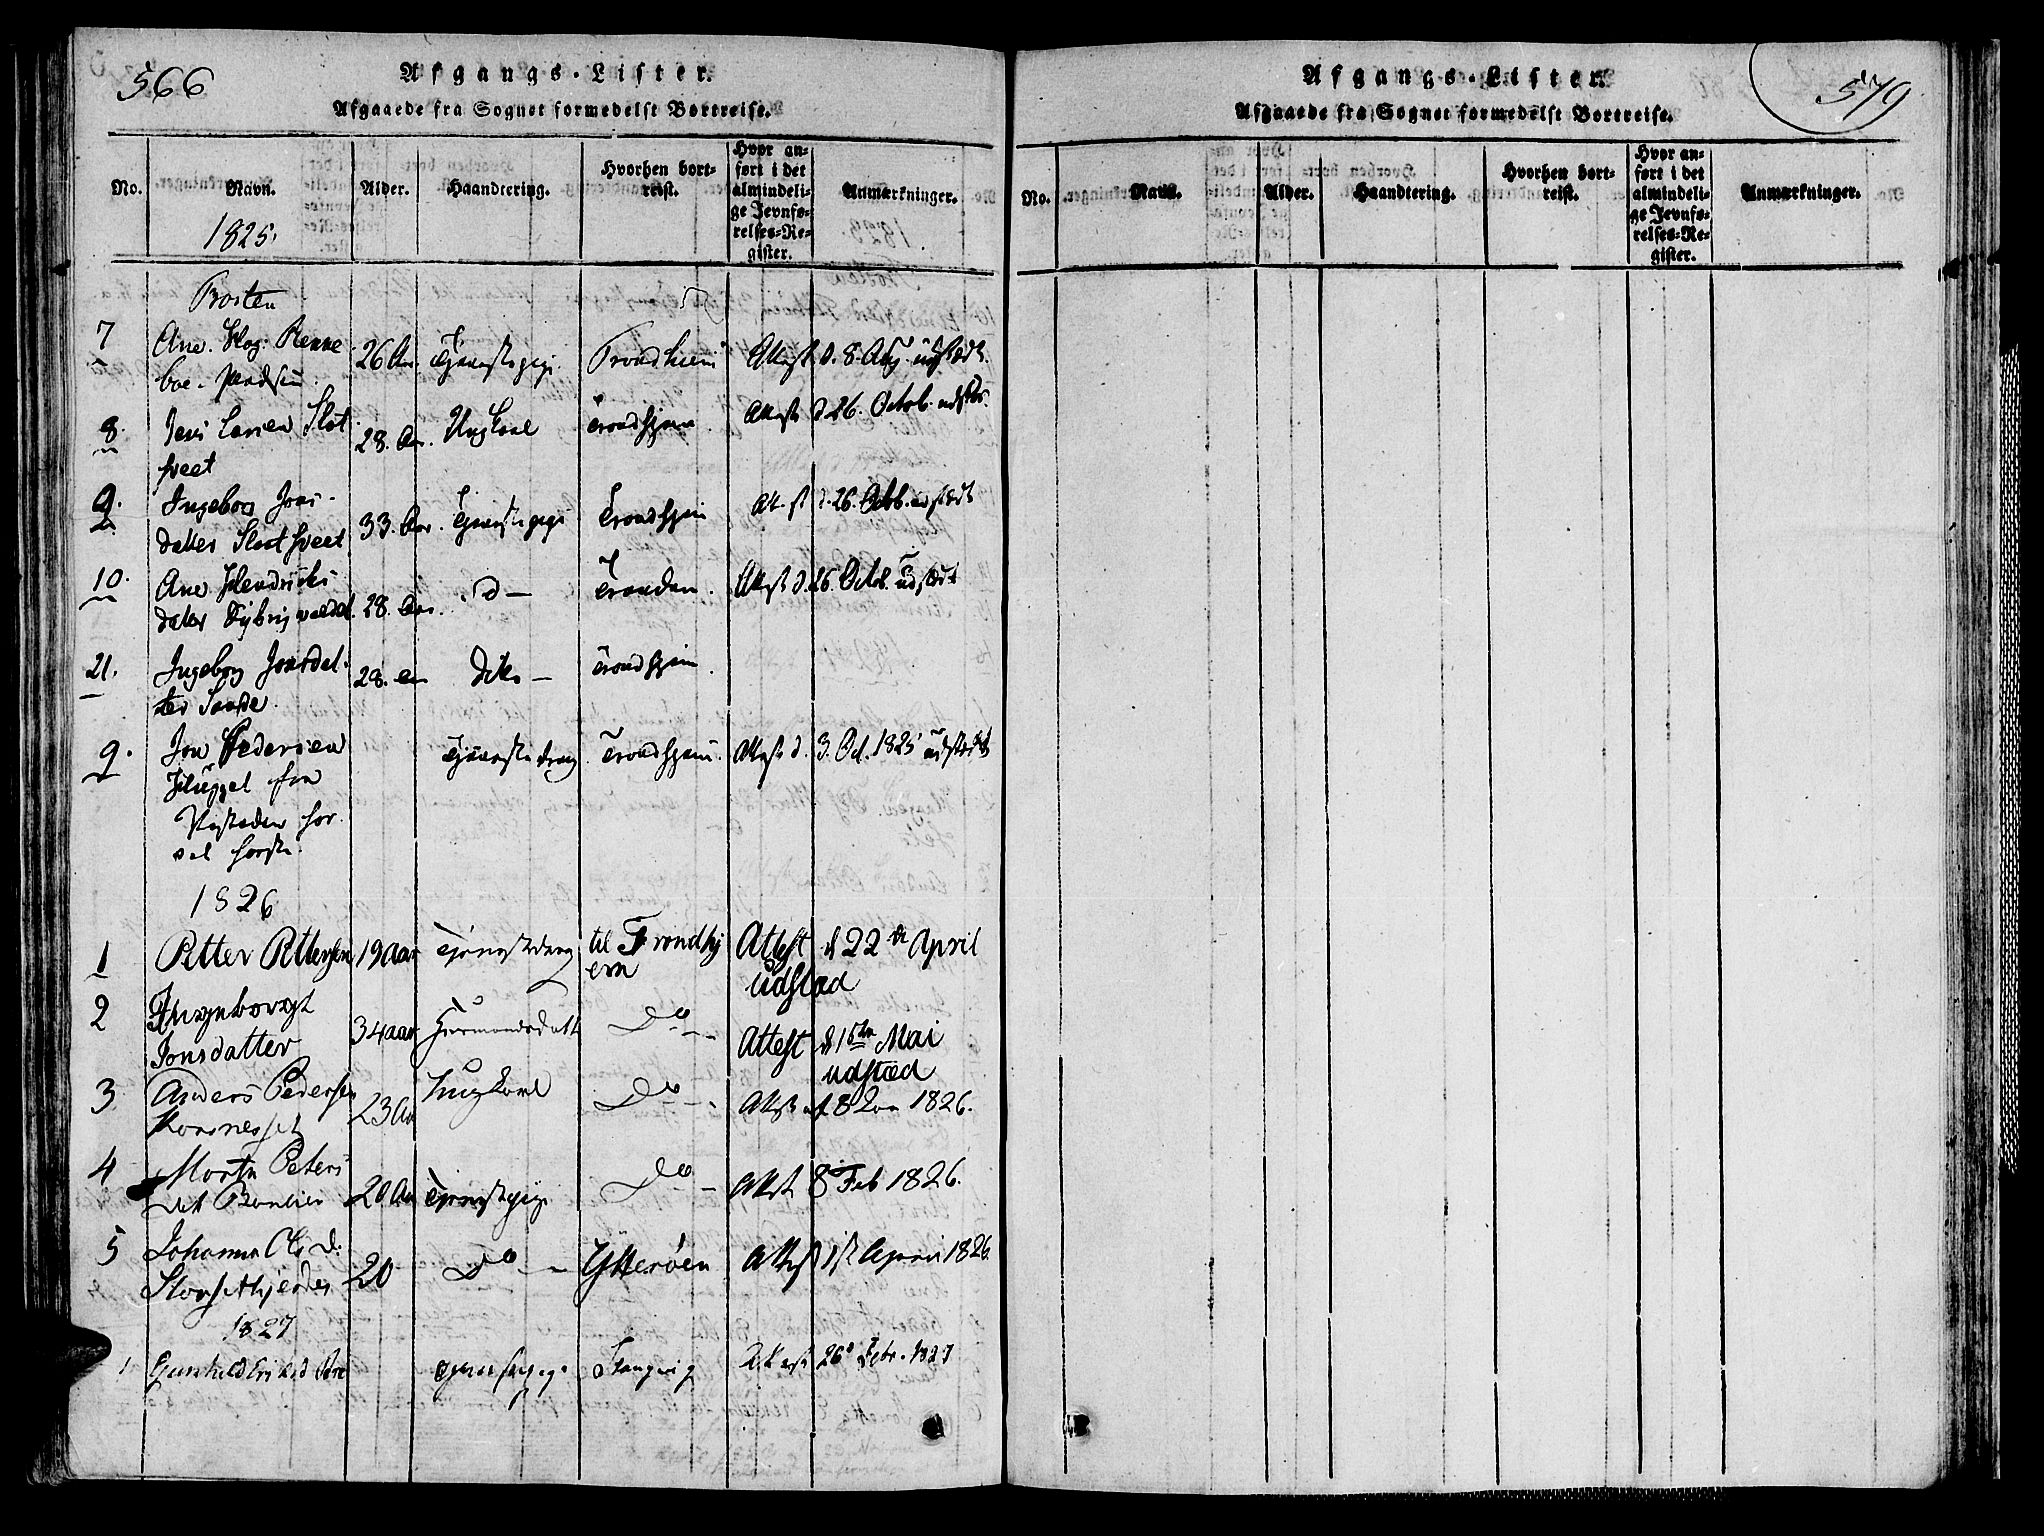 566
Afgangs-Lister.
Afgaaede fra Sognet formedelst Bortreise.
No.
Navn.
1825.
Alder.
Haandtering.
Hvorhen bort-
reist.
Hvor an-
ført i det
almindeli-
ge Jevnfø-
relses-Re-
gister.
Anmærkninger.
7
Ane
26 Aar
Trondhiem
Attest d. 8. Aug. udstædt.
8.
Jens Larsen Slot
sveet
28. Aar.
Ungkarl
Trondhjem
Attest d 26. Octob. udstdt.
9.
Ingebor Jons-
datter Slotsveet
33. Aar.
Tjenestepige
Trondhjem
Att.st d. 26. Octb. udstædt
10.
Ane Hendrichs
datter
28. Aar.
d –
Tronden.
Attest d 26 Octb. udstædt
21.
Ingebor Jonsdat-
ter Sande.
28.
Dito –
Trondhjem.
9.
Jon Pedersen
fra
Tjenestedreng
Trondhjem.
Attest d. 3. Oct. 1825 udstædt
1826
1
Petter Pettersen
19 Aar
Tjenestedreng
til Trondhj
em
Attest d 22de April
udstæd
2
Ingeborgt
Jonsdatter
34 aar
Do –
Attest d 15de Mai
udstæd
3
Anders Pedersen
Korsnesset
23 Aar
Ungkarl
Do –
Attest af 8 Jan 1826.
4
Morten Peters
dat
20 Aar
Tjenestepige
Do –
Attest 8 Feb 1826.
5
Johanna Ols D.
20
Do –
Ytterøen
Attest 1st April 1826.
1827
1
Gunhild
Tjenestepige
Stangvig
Attest 26d Febr. 1827
Afgangs-Lister.
Afgaaede fra Sognet formedelst Bortreise.
579
No.
Navn.
Alder.
Haandtering.
Hvorhen bort-
reist.
Hvor an-
ført i det
almindeli-
ge Jevnfø-
relses-Re-
gister.
Anmærkninger.